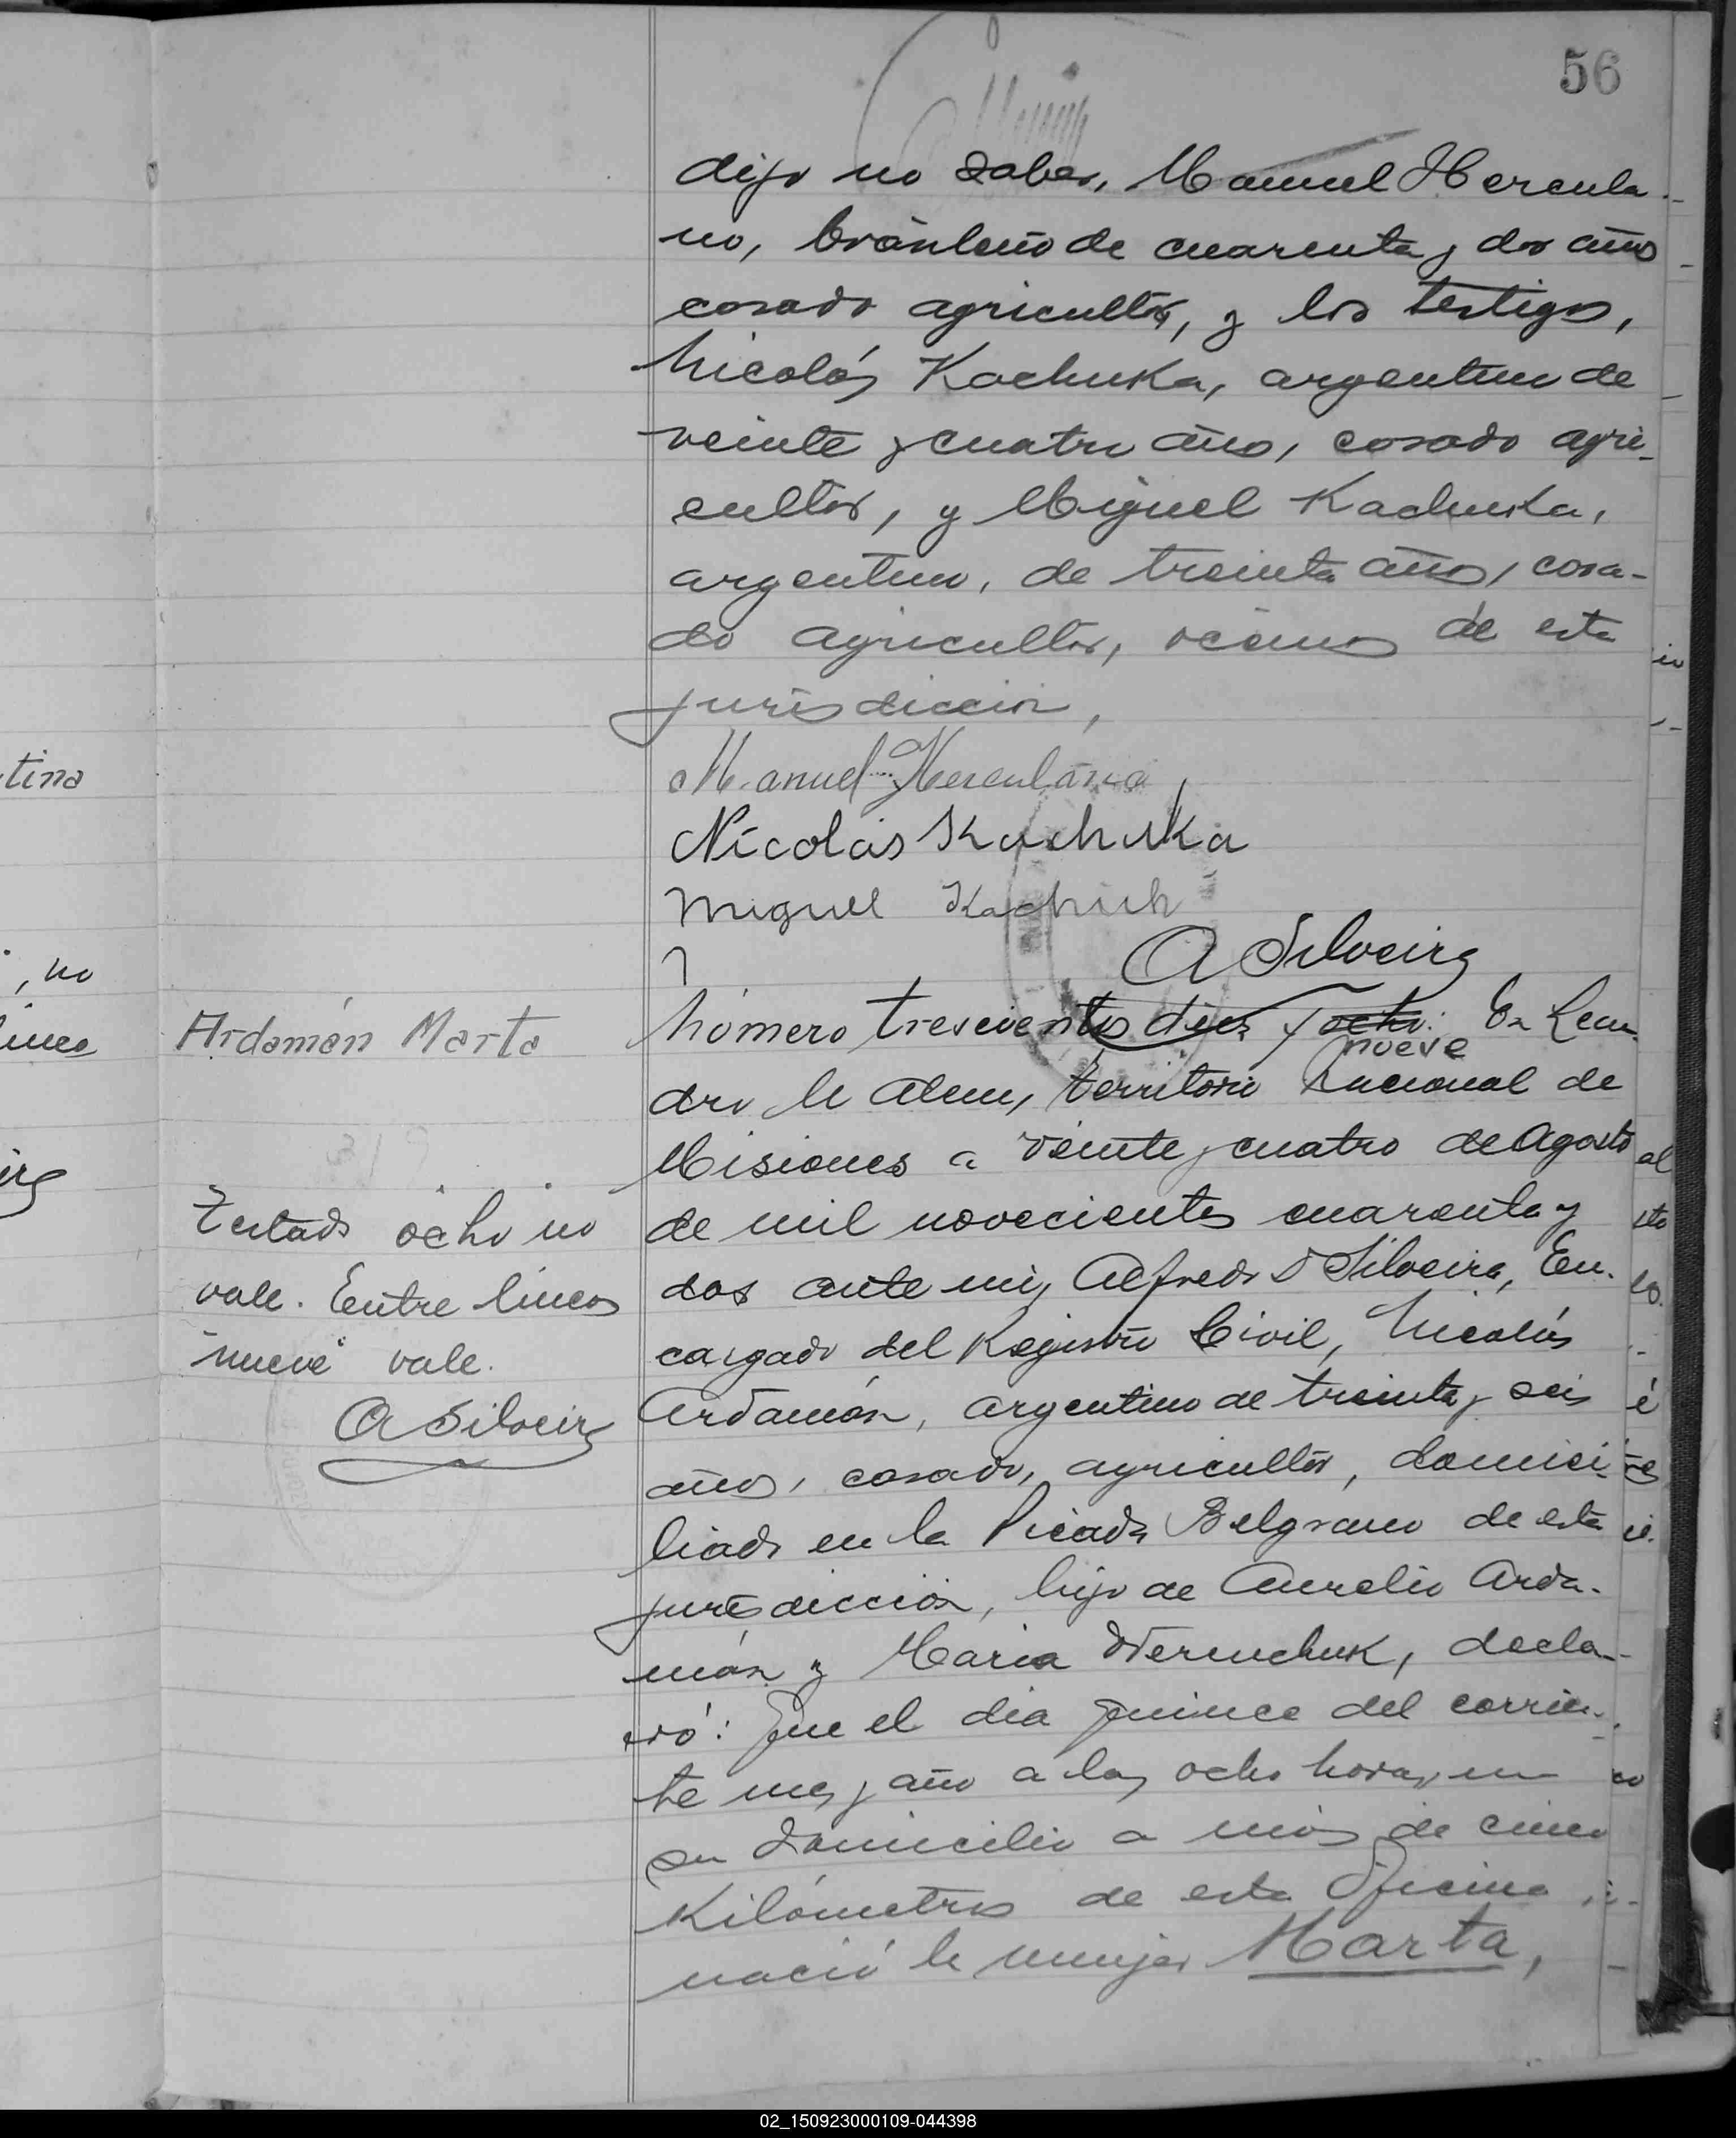 56
dijo no saber, Manuel Hercula-
no, brasileño de cuarenta y dos años
casado agricultor, y los testigos,
Nicolás Kachuka, argentino de
veinte y cuatro años, casado agri-
cultor, y Miguel Kachuka,
argentino, de treinta años, casa-
do agricultor, vecinos de esta
jurisdicción,
Manuel Herculano
Nicolás Kachuka
Miguel Kachuk
A Silveira
Ardamán Marta
Número trescientos diez y ocho. En Lean-
nueve
dro N Alem, territorio Nacional de
Misiones a veinte y cuatro de Agosto
de mil novecientos cuarenta y
dos ante mi, Alfredo D Silveira, En-
cargado del Registro Civil, Nicolás
Ardamán, argentino de treinta y seis
años, casado, agricultor, domici-
liado en la Picada Belgrano de esta
jurisdicción, hijo de Aurelio Arda-
mán y Maria Werenchuk, decla-
ró: Que el dia quince del corrien-
te mes y año a las ocho horas, en
su domicilio a más de cinco
Kilómetros de esta Oficina
nació la mujer Marta,
319
Testado ocho no
vale. Entre lineas
"nueve" vale.
A Silveira
tina
, no
02_150923000109-044398